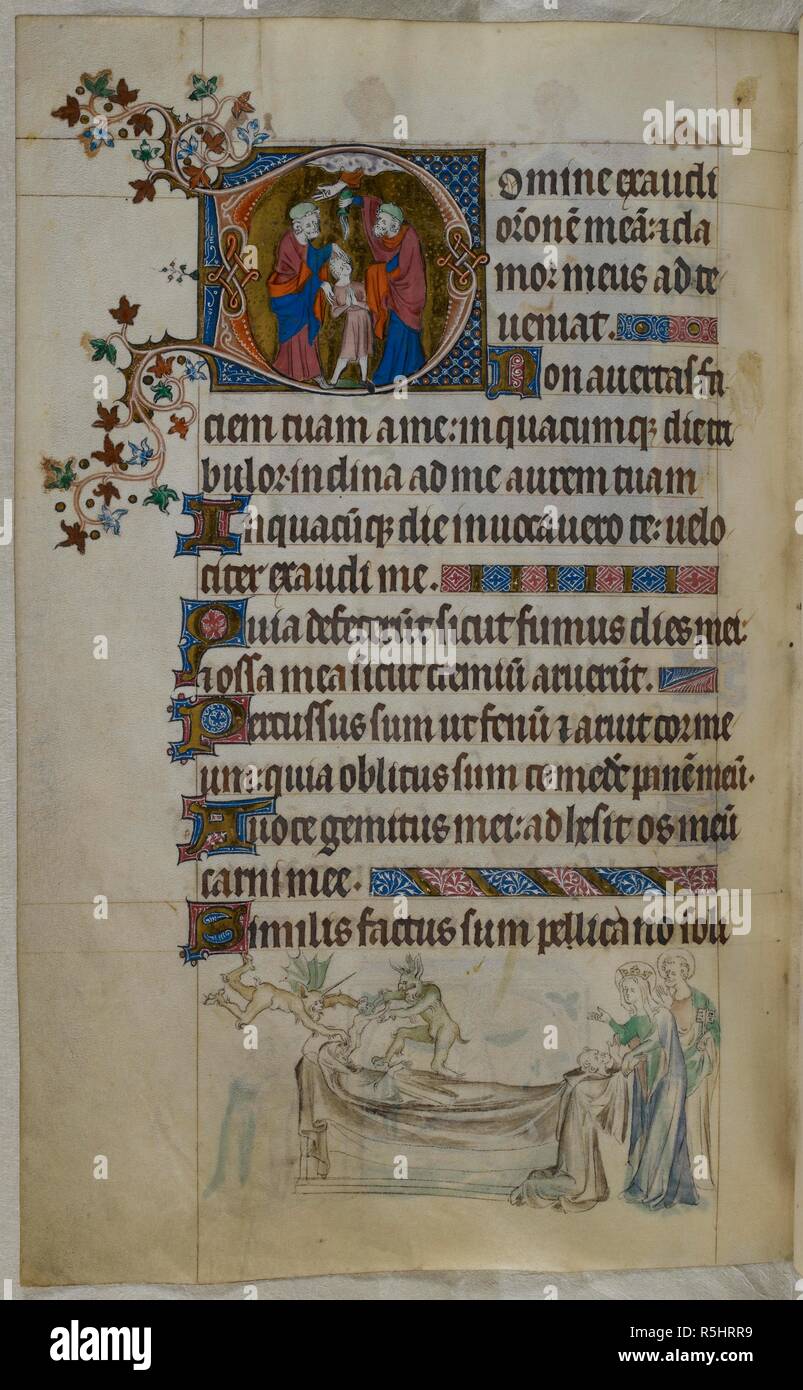 Domine exaudi
orõnẽ meã: ⁊ cla
mor meus ad te
ueniat.
Non auertas fa
ciem tuam a me: in quacumqꝫ die tri
bulor inclina ad me aurem tuam
In quacũqꝫ die inuocauero te: uelo
citer exaudi me.
Quia defecerũt sicut fumus dies mei:
⁊ ossa mea sicut cremiũ aruerũt.
Percussus sum ut fenũ ⁊ aruit cor me
um: quia oblitus sum comedẽ panẽ meũ.
A uoce gemitus mei: adhesit os meũ
carni mee.
Similis factus sum pellicano soli
alamy
Image ID: R5HRR9
www.alamy.com